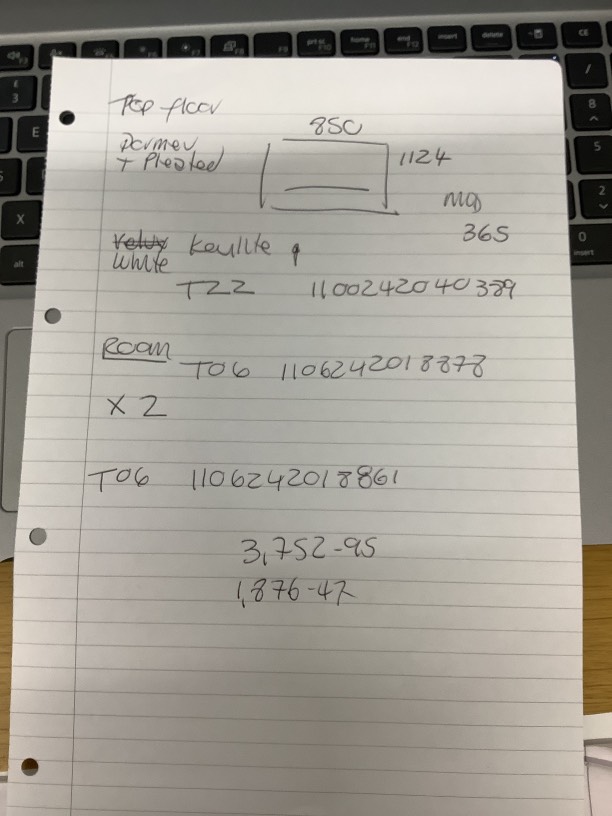 Top floor
850
Dormer
+ Pleated
1124
MD
365
Velux Keylite
White
T22 1100242040389
Room
T06 1106242018878
X 2
T06 1106242018861
3,752-95
1,876-47